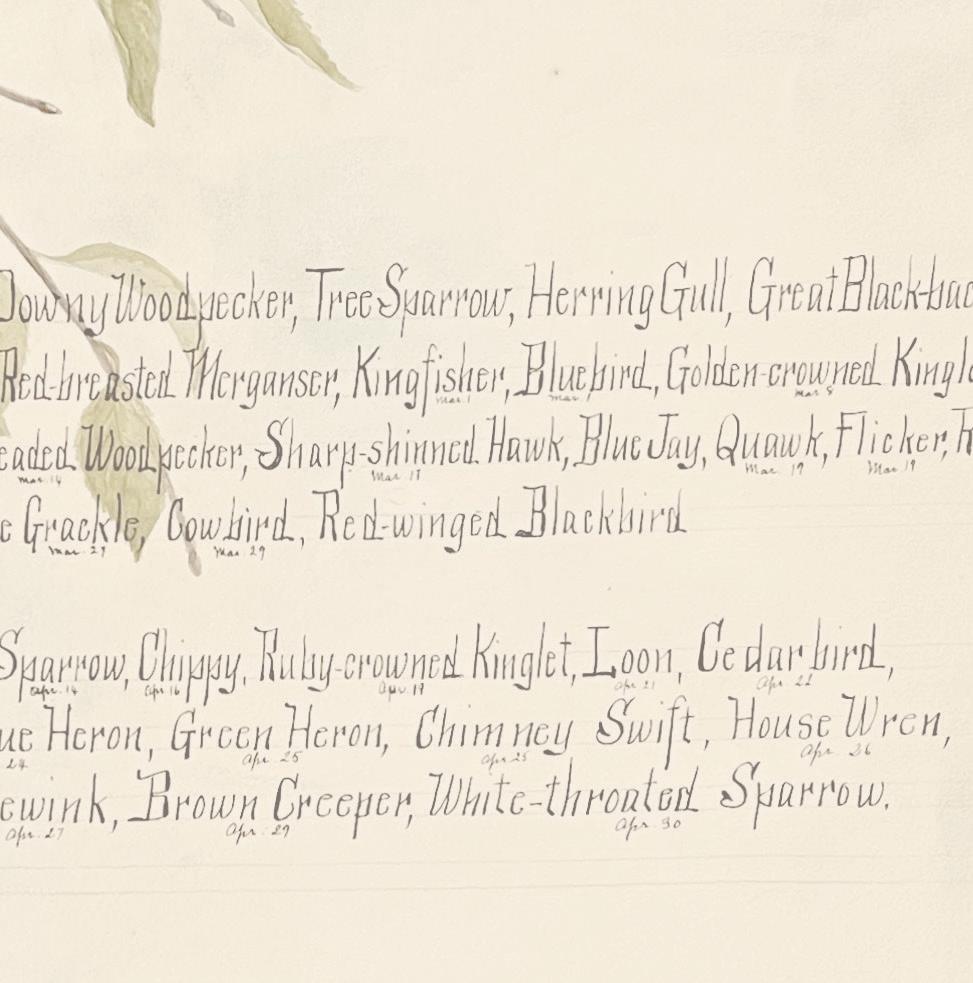 Downy Woodpecker, Tree Sparrow, Herring Gull, Great Black-bac
Red-breasted Merganser, Kingfisher, Bluebird, Golden-crowned Kingl
Mar. 1 Mar. Mar 8
eaded Woodpecker, Sharp-shinned Hawk, Blue Jay, Quawk, Flicker,
Mar. 14 Mar. 17 Mar. 19 Mar. 19
e Grackle, Cowbird, Red-winged Blackbird
Mar. 29 Mar. 29
Sparrow, Chippy, Ruby-crowned Kinglet, Loon, Cedarbird,
Apr. 14 Apr. 16 Apr. 19 Apr. 21 Apr. 22
ue Heron, Green Heron, Chimney Swift, House Wren,
24 Apr. 25 Apr. 25 Apr. 26
ewink, Brown Creeper, White-throated Sparrow.
Apr. 27 Apr. 29 Apr. 30